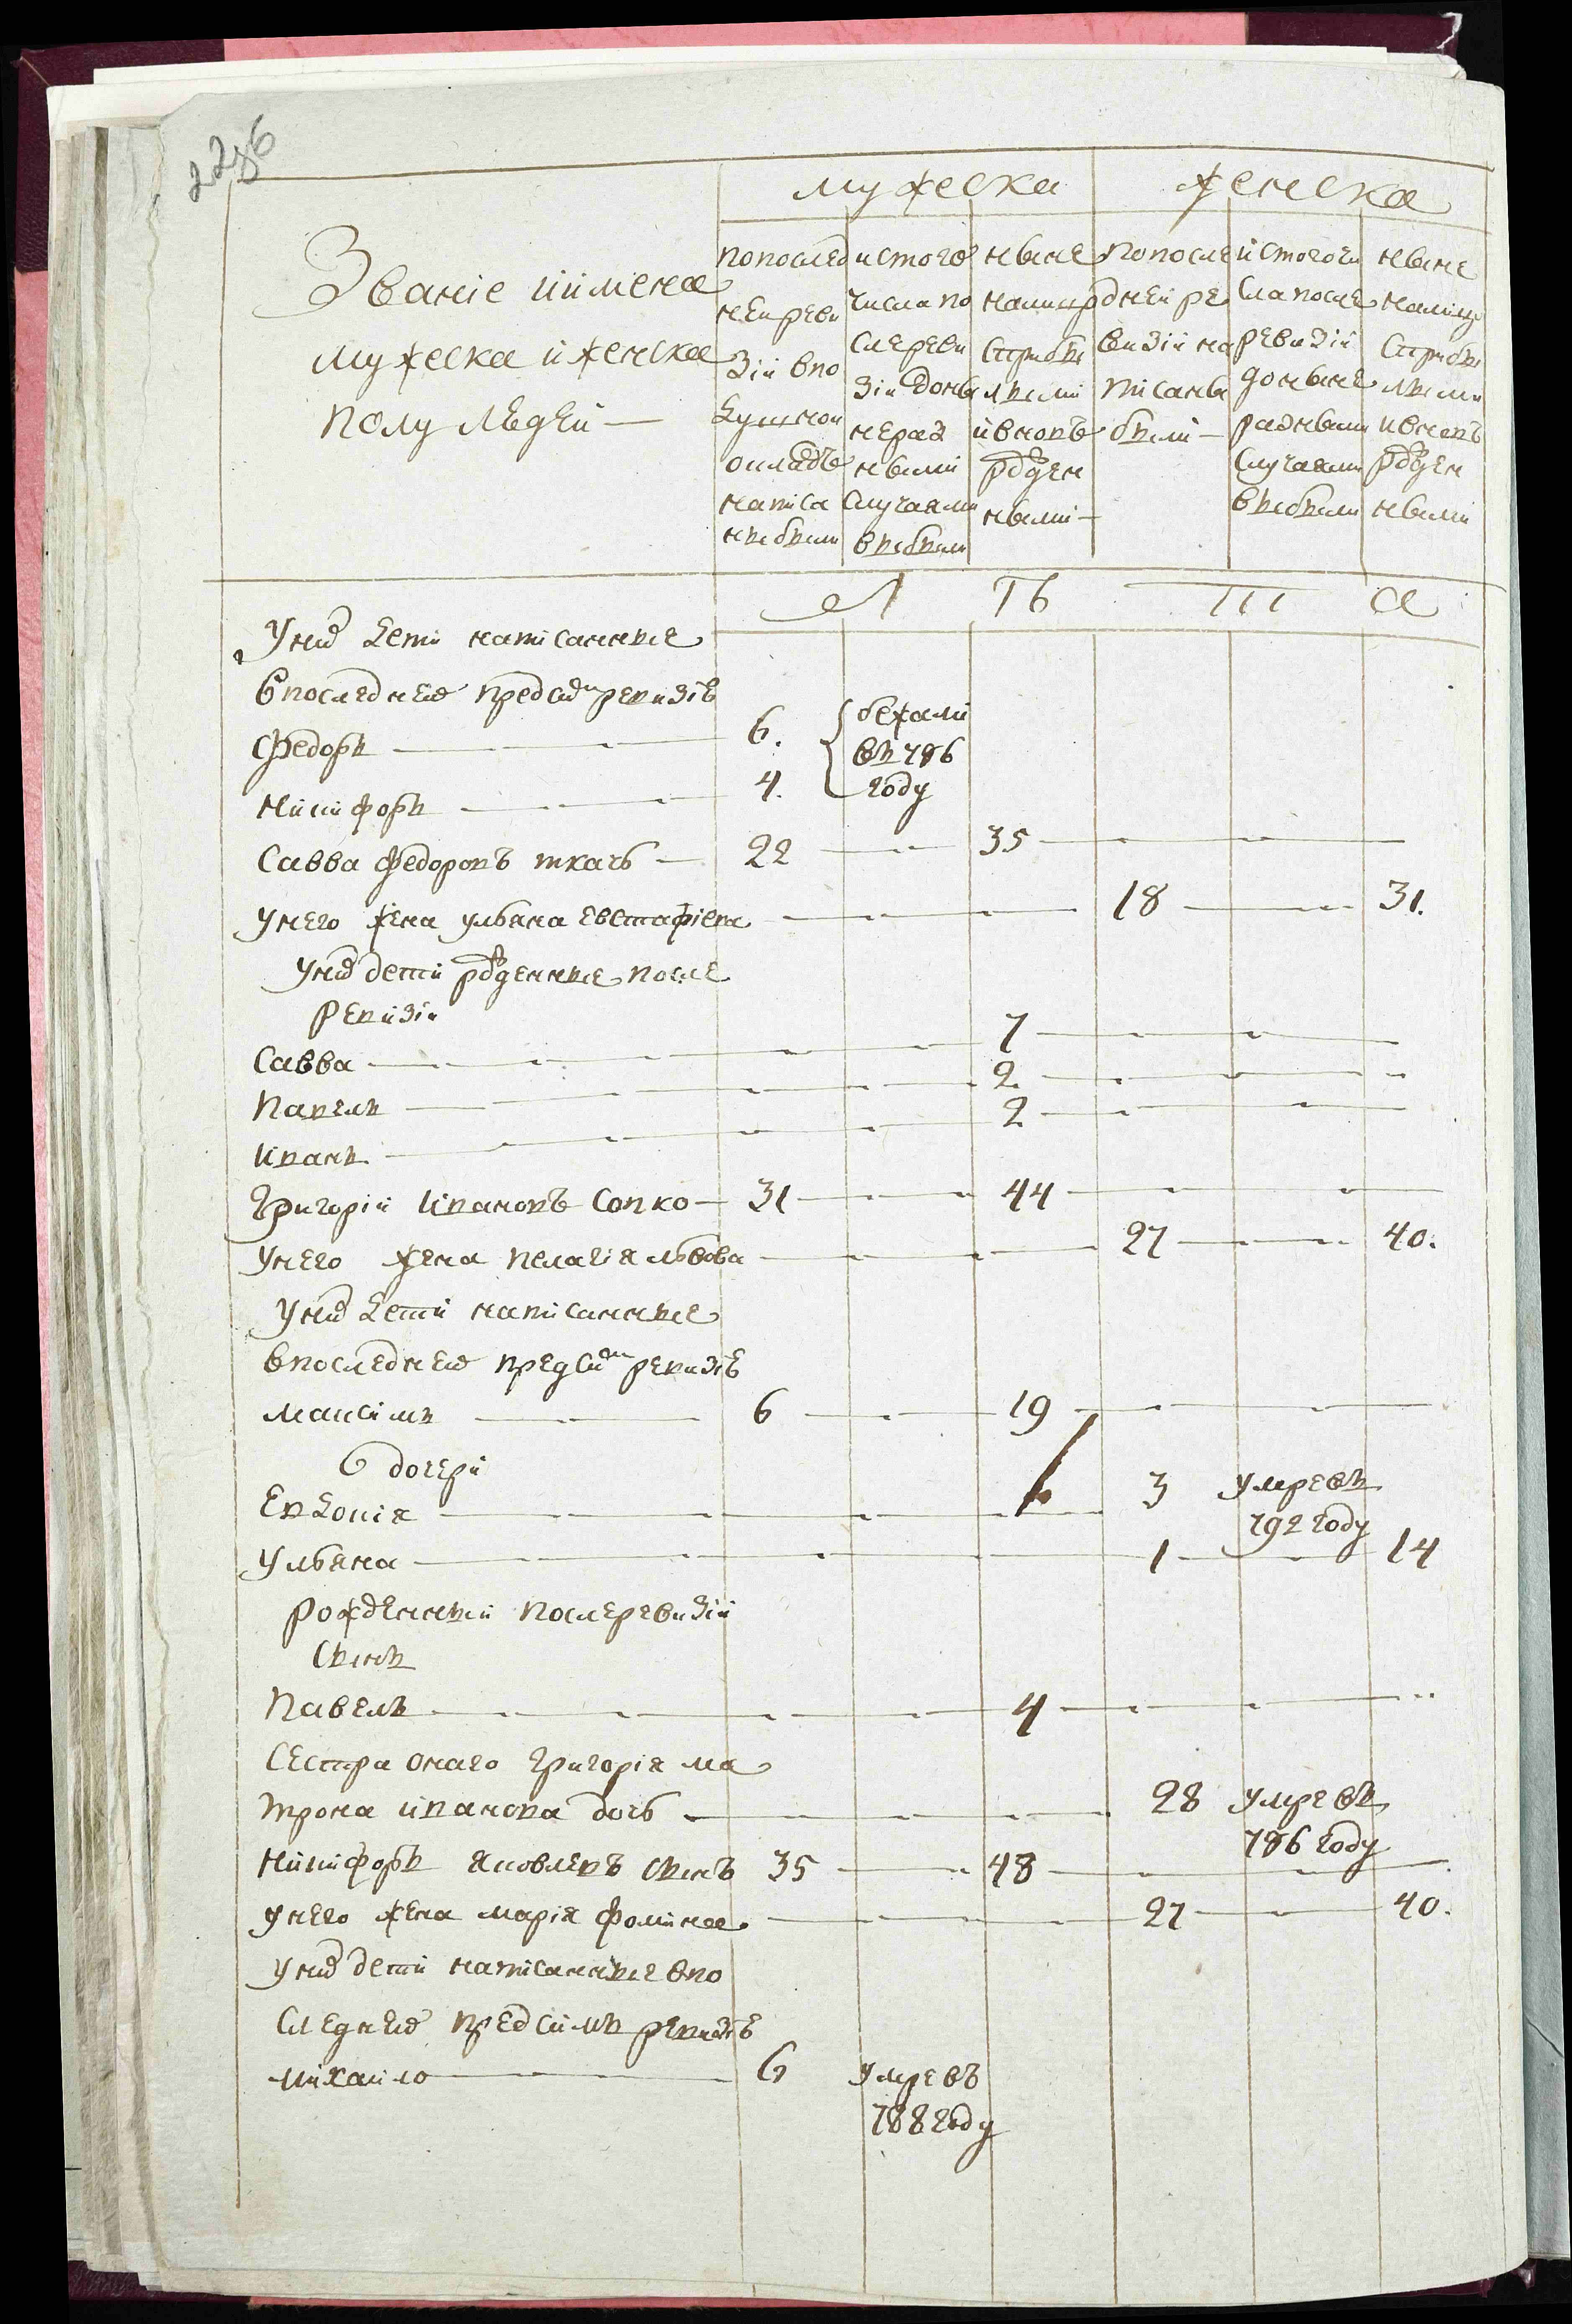 22об
мужеска женска
Званіе иимена
мужеска иженска
полу людей —
попослед
ней реви
зіи впо
душной
окладъ
написа
ны были
истого
числа по
сле реви
зіи доны
не раз
ными
случаями
выбыли
ныне
налицо
сприбы
лыми
ивновь
рожден
ными —
Попосле
дней ре
визіи на
писаны
были —
истогочи
сла после
ревизіи
доныне
разными
случаями
выбыли
ныне
налицо
сприбы
лыми
ивновь
рожден
ными
Л Т Ь Т А
Уних дети написанные
впоследней предсим ревизіи
Федоръ 6. бежали
въ 786
Никифоръ 4. году
Савва Федоровъ ткачь — 22 35
Унего жена ульяна евстафіева 18 31.
Уних дети рожденные после
ревизіи
Савва 7
Павелъ 2
Иванъ 2
Григорій Ивановъ Сопко — 31 44
Унего жена пелагія львова 27 40.
Уних дети написанные
впоследней предсим ревизіи
Максимъ 6 19
дочери
Евдокія 3 умре въ
792 году
Ульяна 1 14
рожденный послеревизіи
сынъ
Павелъ 4
Сестра онаго григорія ма
трона иванова дочь 28 умре въ
786 году
Никифоръ яковлевъ сынъ 35 48
унего жена марія фомина 27 40.
уних дети написанные впо
следней предсимъ ревизіи
михайло 6 умре въ
788 году